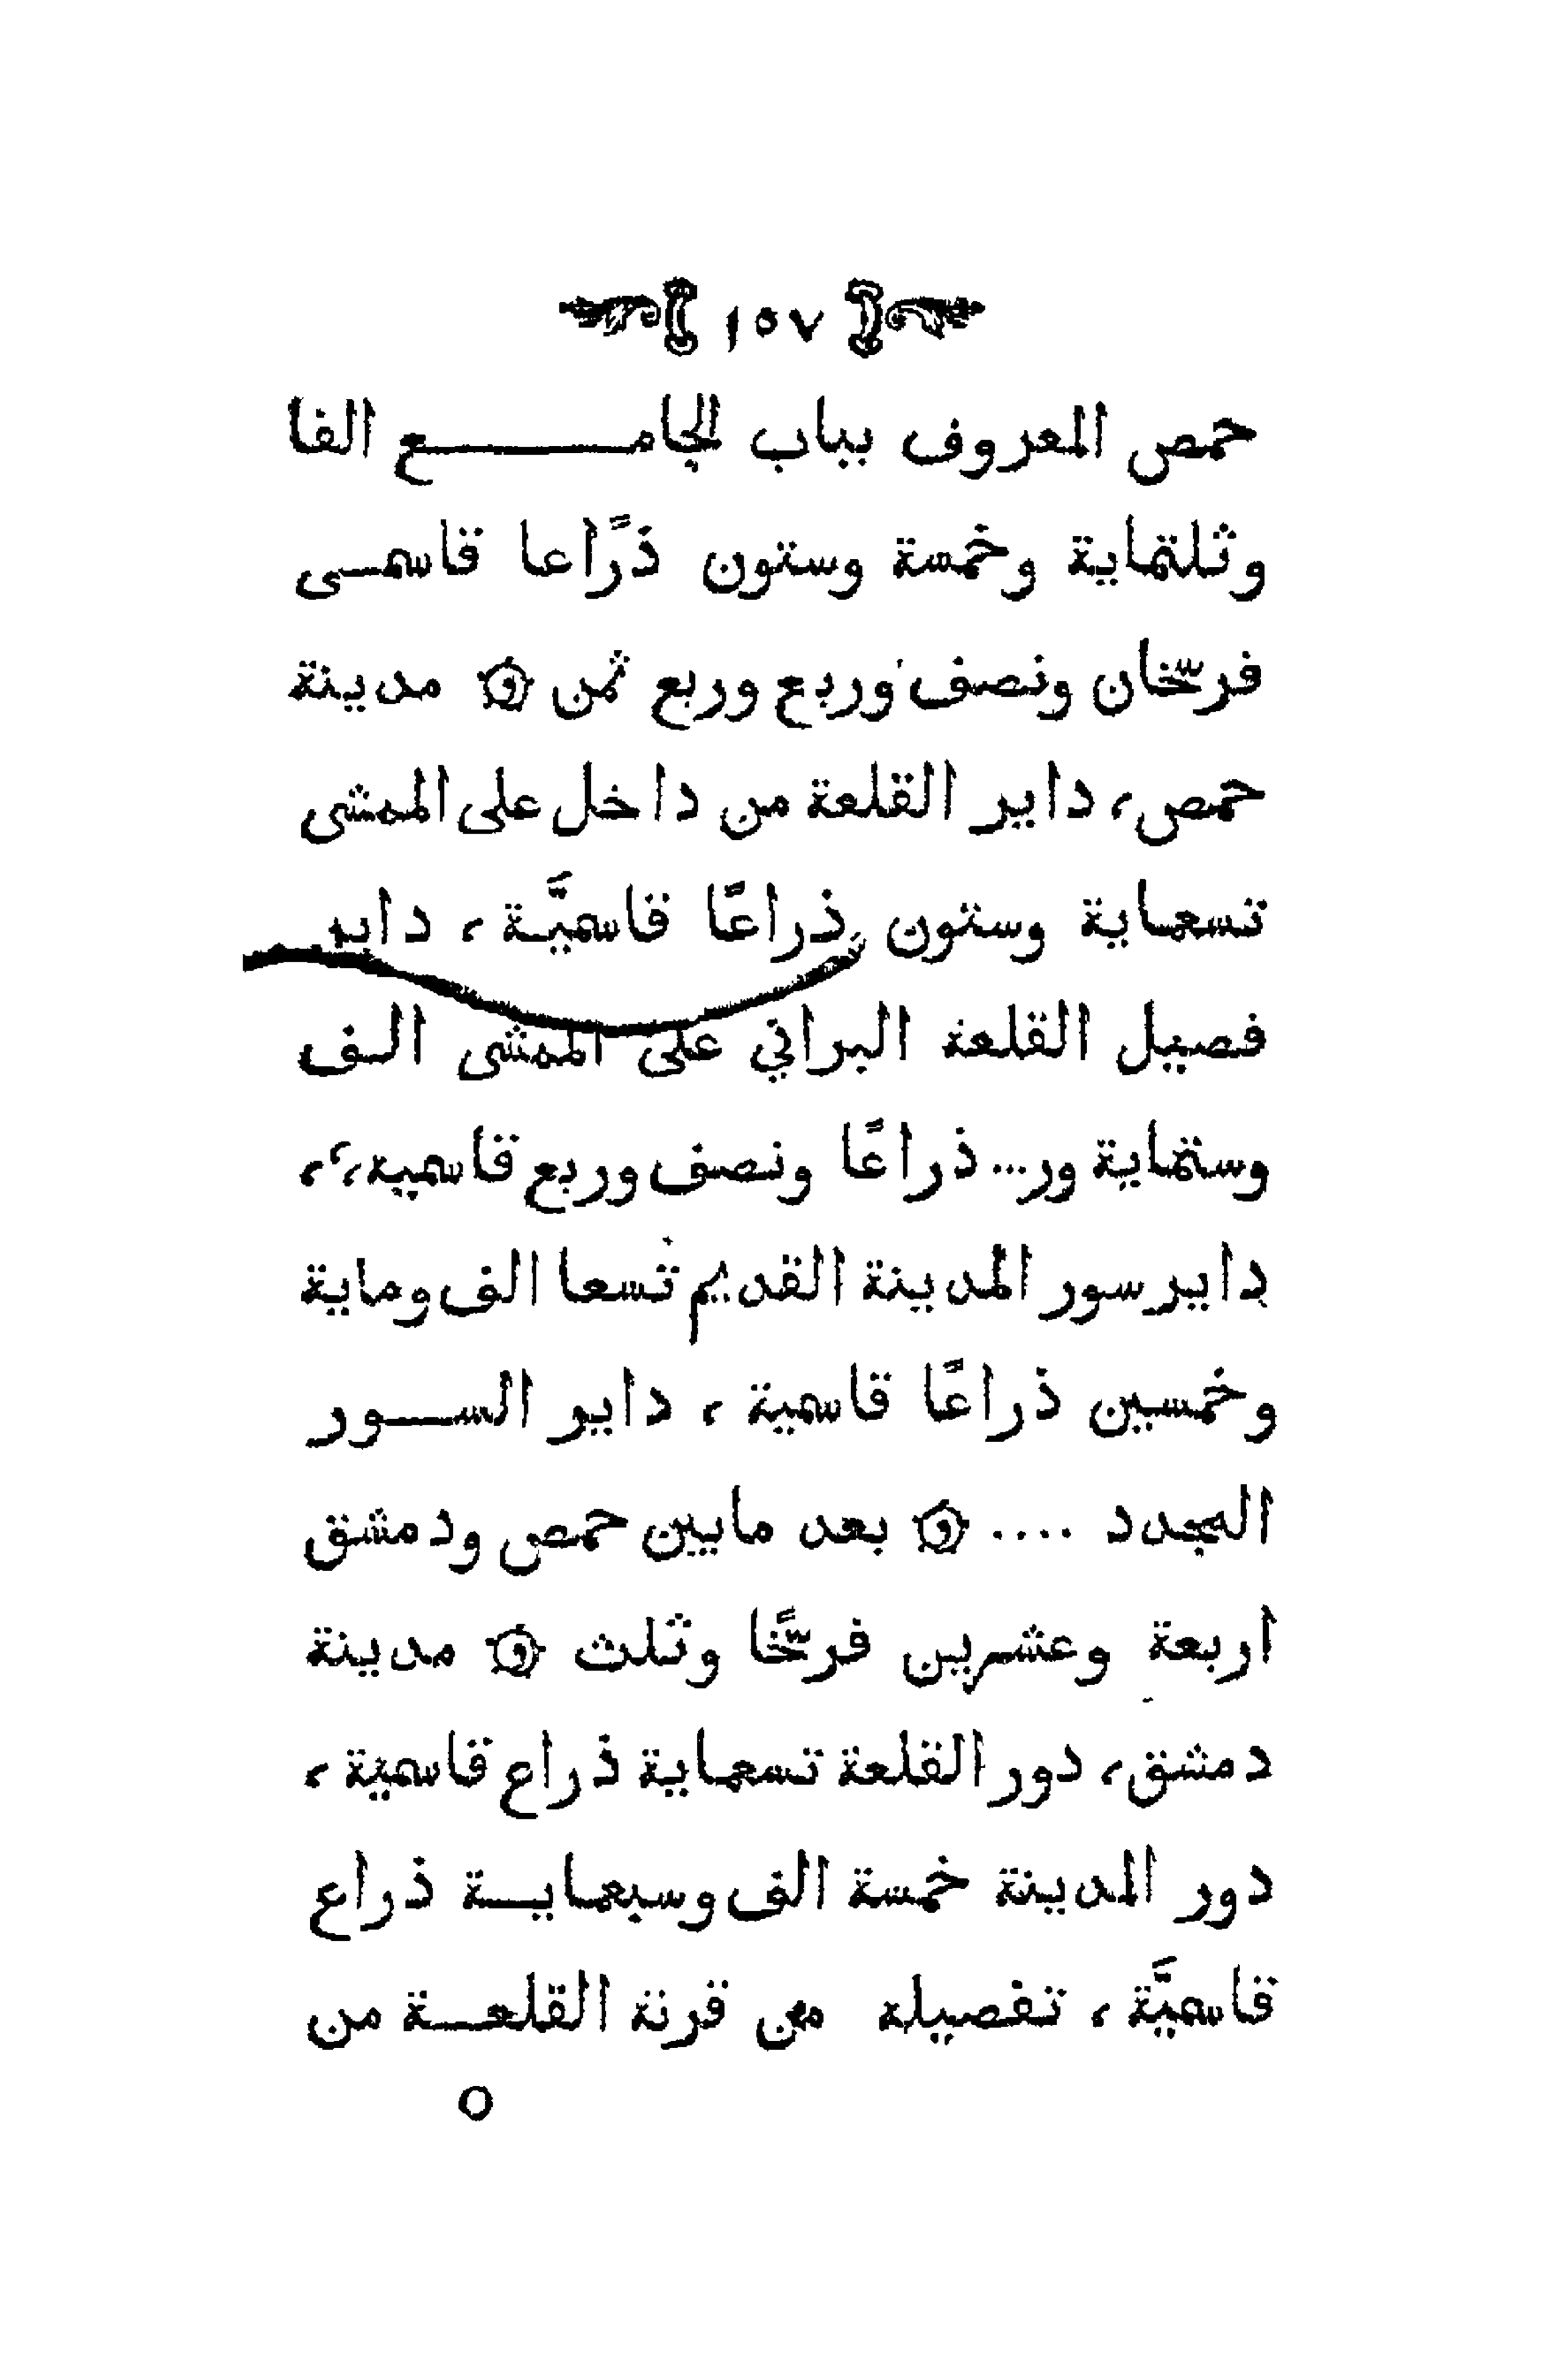 ١٥٧
حمص المعروف بباب الجامع الفا
وثلثماية وخمسة وستون ذرًاعا قاسمى
فرسخان ونصف وربع وربع ثمن ۞ مدينة
حمص، داير القلعة من داخل على الممشى
تسعماية وستون ذراعًا قاسميَّة، داير
فصيل القلعة البراني على الممشى الف
وستماية ور... ذراعًا ونصف وربع قاسميه،،
داير سور المدينة القديم تسعا الف وماية
وخمسين ذراعًا قاسمية، داير السور
المجدد .... ۞ بعد مابين حمص ودمشق
اربعة وعشرين فرسخًا وثلث ۞ مدينة
دمشق، دور القلعة تسعماية ذراع قاسمية،
دور المدينة خمسة الف وسبعماية ذراع
قاسميَّة، تفصيله من قرنة القلعة من
٥